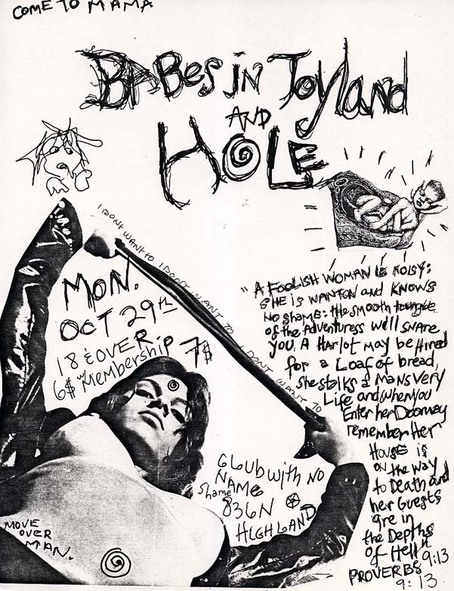 COME TO MAMA
BABes iN Toyland
AND
HOLE
I DON'T WANT TO I DON'T WANT TO I DON'T WANT TO
MON.
OCT 29th
18 & OVER
6$ w/Membership 7$
" A FOOLISH WOMAN IS NOISY:
SHE IS WANTON and KNOWS
No shame: the smooth tongue
of the Adventuress will snare
you. A Harlot may be Hired
for a Loaf of bread,
she stalks a mans very
Life and when you
Enter her Doorway
remember Her
House is
on the Way
to Death and
her Guests
are in
the Depths
of Hell"
PROVERBS 9:13
9:13
CLUB WITH NO
NAME
Shame
836N
HIGHLAND
MOVE
OVER
MAN.